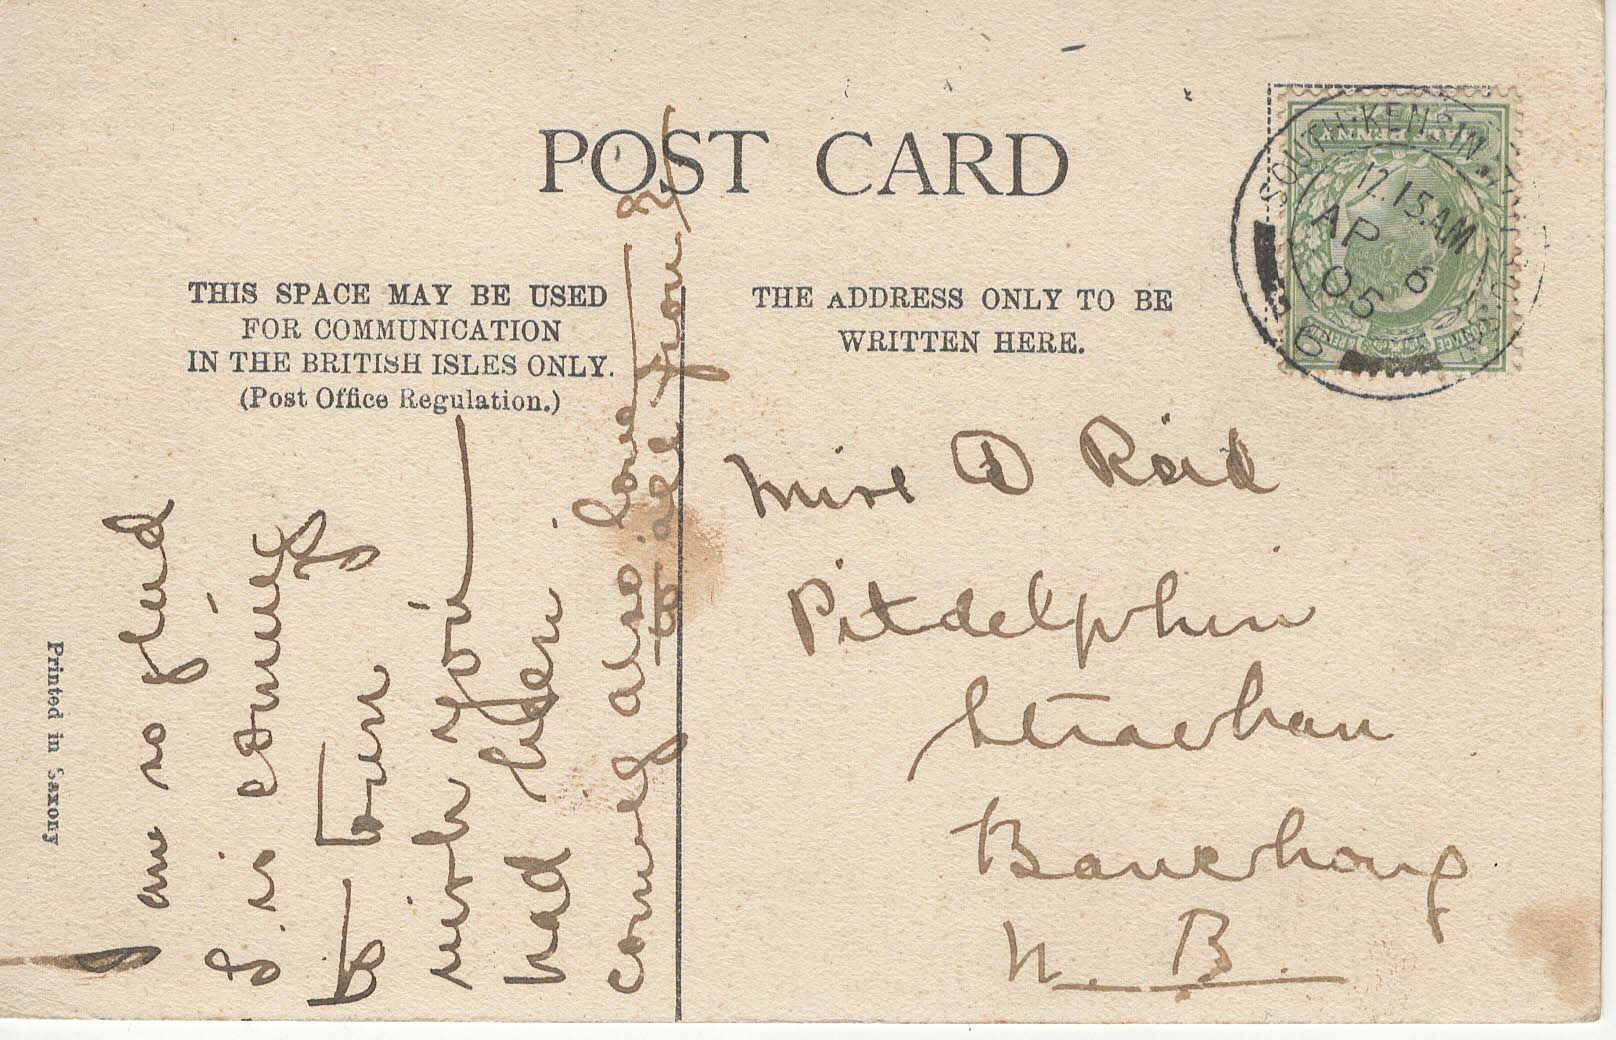 POST CARD
THIS SPACE MAY BE USED
FOR COMMUNICATION
IN THE BRITISH ISLES ONLY.
(Post Office Regulation.)
THE ADDRESS ONLY TO BE
WRITTEN HERE.
HALF PENNY
POSTAGE
SOUTH KENSINGTON
12.15 AM
AP 6
05
Miss D Reid
Pitdelphin
Strachan
Banchory
N. B.
I am so glad
G. is coming
to town
wish you
had been
coming also love
to all from
Printed in Saxony